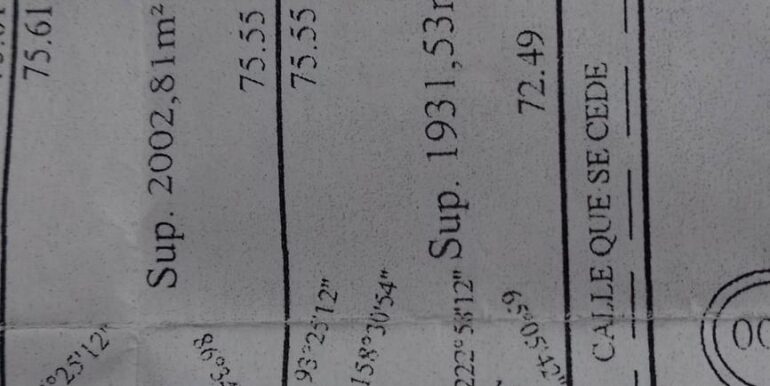 75.61
Sup. 2002,81m²
75.55
75.55
Sup. 1931,53
72.49
CALLE QUE SE CEDE
°25'12"
93°25'12"
158°30'54"
222°58'12"